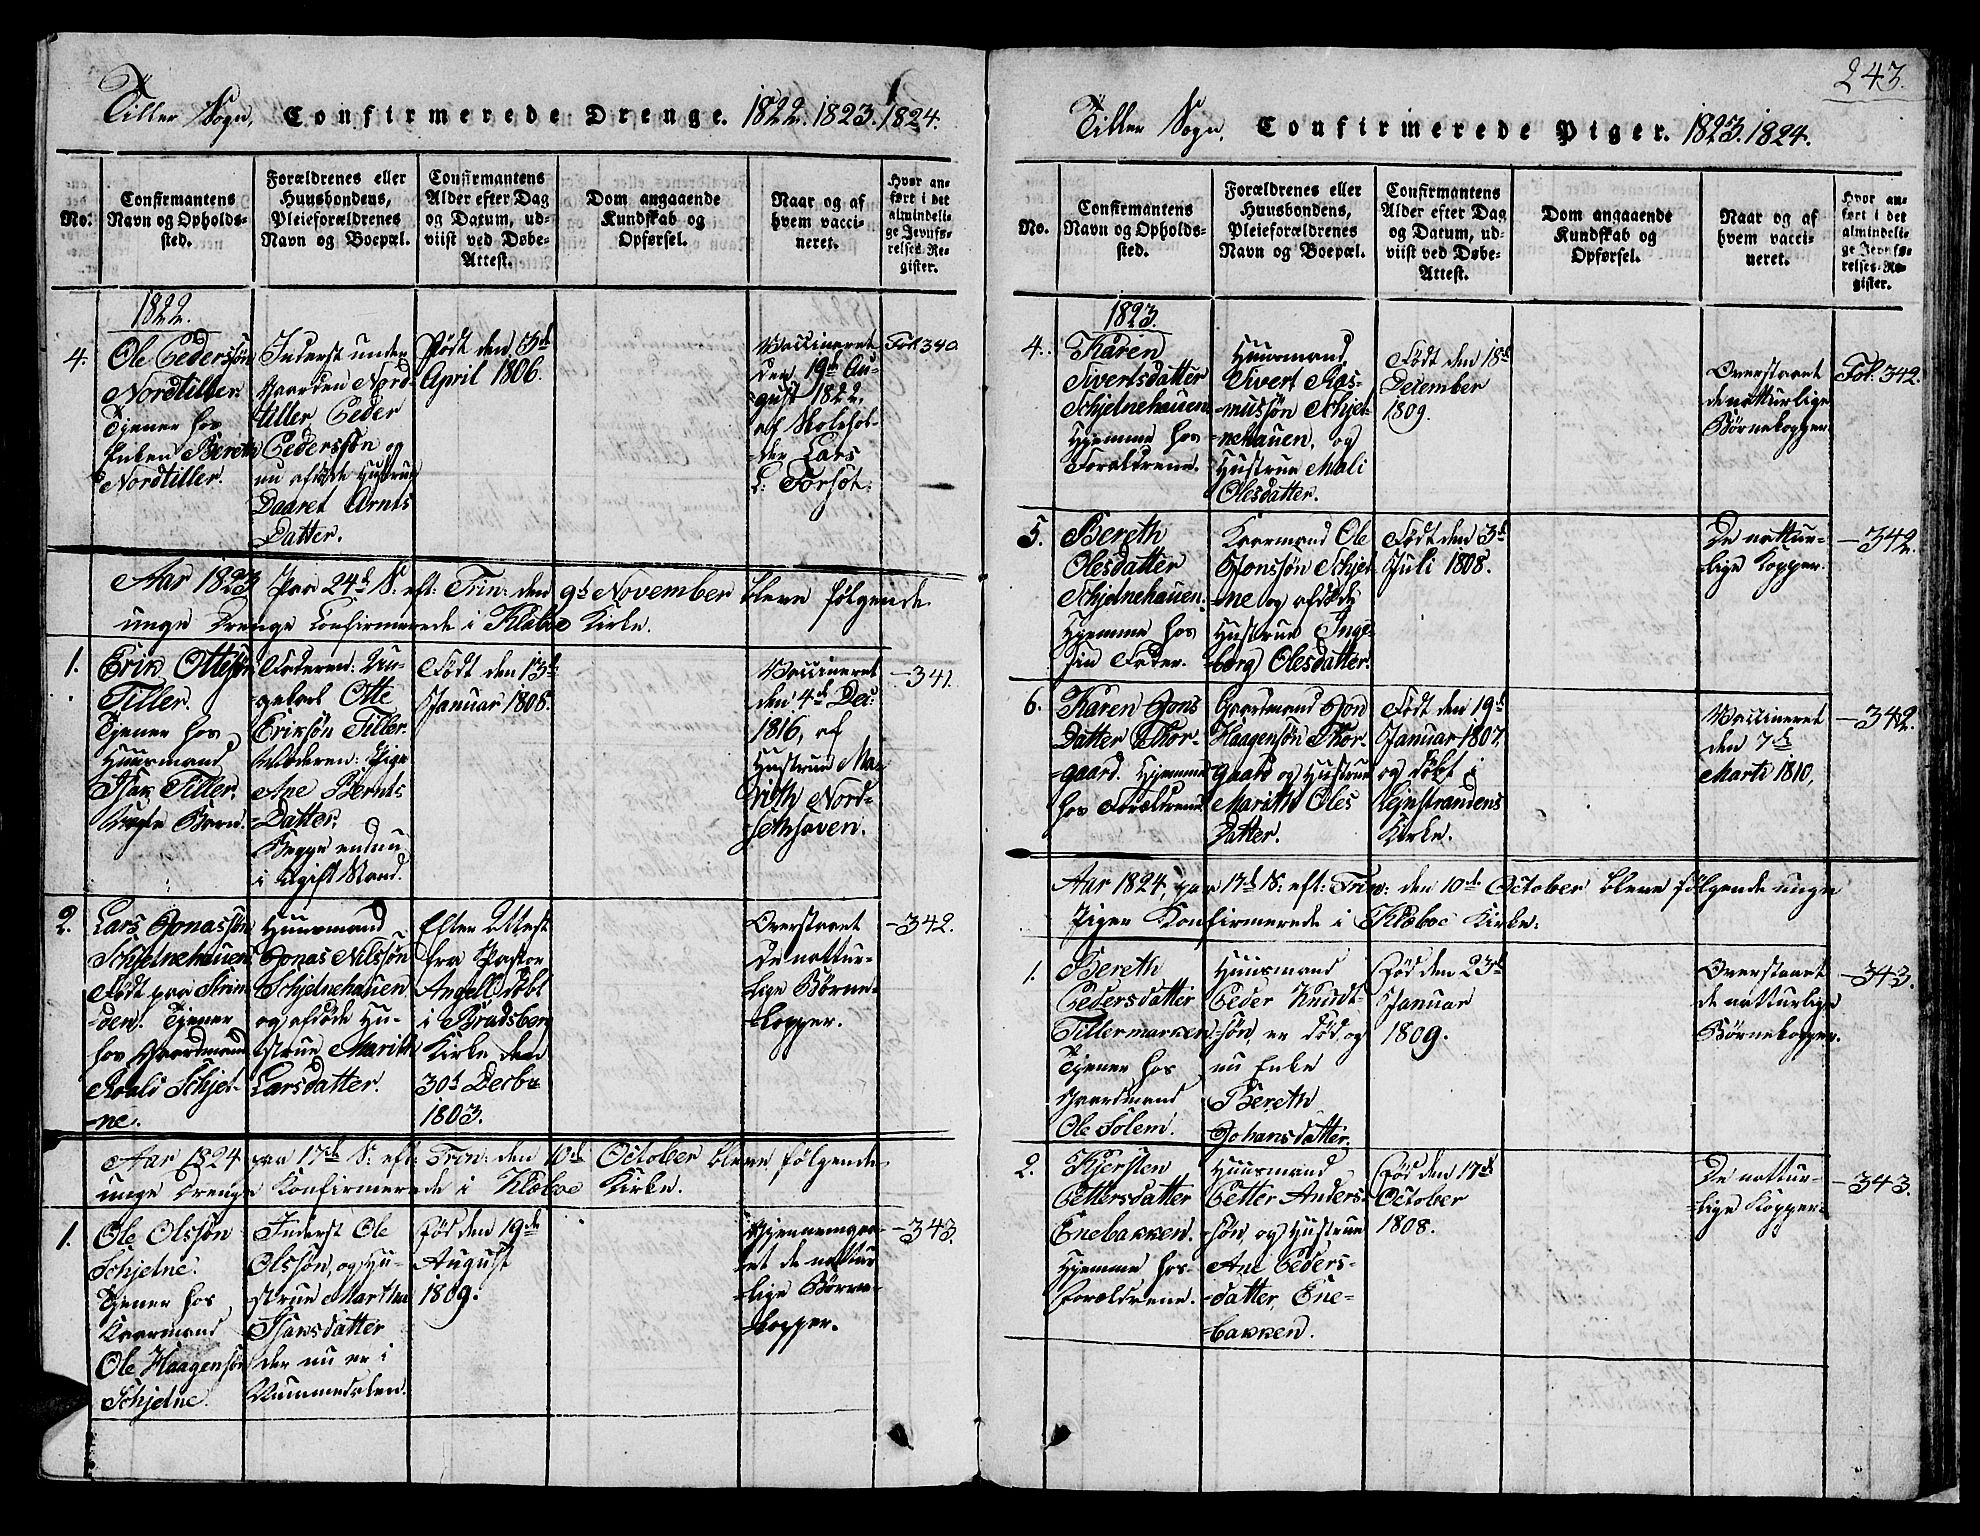 Tiller Sogn, Confirmerede Drenge. 1822. 1823. 1824.
No.
Confirmantens
Navn og Opholds-
sted.
Forældrenes eller
Huusbondens,
Pleieforældrenes
Navn og Boepæl.
Confirmantens
Alder efter Dag
og Datum, ud-
viist ved Døbe-
Attest.
Dom angaaende
Kundskab og
Opførsel.
Naar og af
hvem vacci-
neret.
Hvor an-
ført i det
almindeli-
ge Jevnfø-
relses-Re-
gister.
1822.
4.
Ole Pedersøn
Nordtiller
Tjener hos
Enken Bereth
Nordtiller.
Inderst under
Gaarden Nord-
tiller, Peder
Pedersøn og
nu afdøde Hustrue
Daaret Arnts
Datter.
Født den 3d
April 1806.
Vaccineret
den 19de Au-
gust 1822.
af Skolehol-
der Lars
L: Forset.
Fol 340.
Aar 1823 Paa 24d S: eft: Trin: den 9d November bleve følgende
unge Drenge Confirmerede i Klæboe Kirke.
1.
Erik Ottesøn
Tiller.
Tjener hos
Huusmand
Isak Tiller.
Uægte Barn.
Faderen: Un-
gekarl Otte
Eriksøn Tiller.
Moderen: Pige
Ane Bernts
Datter.
Begge endnu
i ugift Stand.
Født den 13d
Januar 1808.
Vaccineret
den 4d Dec:
1816, af
Hustrue Ma-
rith Nord-
sethaven.
-341.
2.
Lars Jonassøn
Schjelnehauen
Født paa Strin-
den. Tjener
hos Gaardmand
Roald Schjel-
ne.
Huusmand
Jonas Nilssøn
Schjelnehauen
og afdøde Hu-
strue Marith
Larsdatter.
Efter Attest
fra Pastor
Angell døbt
i Bradsberg
Kirke den
30d Decbr
1803.
Overstaaet
de nattur-
lige Børne-
kopper.
-342.
Aar 1824 paa 17de S: eft: Trin: den 10d October bleve følgende
unge Drenge Konfirmerede i Klæboe Kirke.
1.
Ole Olssøn
Schjelne.
Tjener hos
Gaarmand
Ole Haagensøn
Schjelne.
Inderst Ole
Olssøn, og Hu-
strue Martha
Isaksdatter
der nu er i
Nummedalen.
Fød den 19de
August
1809.
Gjennemgaa-
et de nattur-
lige Børne-
kopper.
-343.
243.
Tiller Sogn, Confirmerede Piger. 1823. 1824.
No.
Confirmantens
Navn og Opholds-
sted.
Forældrenes eller
Huusbondens,
Pleieforældrenes
Navn og Boepæl.
Confirmantens
Alder efter Dag
og Datum, ud-
viist ved Døbe-
Attest.
Dom angaaende
Kundskab og
Opførsel.
Naar og af
hvem vacci-
neret.
Hvor an-
ført i det
almindeli-
ge Jevnfø-
relses-Re-
gister.
1823.
4.
Karen
Sivertsdatter
Schjelnehauen
Hjemme hos
Forældrene.
Huusmand
Sivert Ras-
mussøn Schjel-
nehauen, og
Hustrue Mali
Olesdatter.
Født den 18d
December
1809.
Overstaaet
de natturlige
Børnekopper.
Fol. 342.
5.
Bereth
Olesdatter
Schjelnehauen.
Hjemme hos
sin Fader.
Gaarmand Ole
Jonssøn Schjel
ne og afdøde
Hustrue Inge-
borg Olesdatter.
Født den 3d
Juli 1808.
De nattur-
lige Kopper.
-342.
6.
Karen Jons
Datter Thor-
gaard. Hjemme
hos Forældrene
Gaardmand Jon
Haagensøn Thor-
gaard og Hustrue
Marith Oles
Datter.
Født den 19d
Januar 1807.
og døbt i
Lejnstrandens
Kirke.
Vaccineret
den 7de
Marti 1810,
-342.
Aar 1824, paa 17d S: eft: Trin: den 10d October bleve følgende unge
Piger Konfirmerede i Klæboe Kirke:
1.
Bereth
Pedersdatter
Tillermarken
Tjener hos
Gaardmand
Ole Solem.
Huusmand
Peder Knudt-
søn, er død, og
nu Enke
Bereth
Johansdatter.
Fød den 23d
Januar
1809.
Overstaaet
de natturlige
Børnekopper.
-343.
2.
Kjersten
Pettersdatter
Enebakken.
Hjemme hos
Forældrene.
Huusmand
Petter Anders-
søn, og Hustrue
Ane Peders-
datter, Ene-
bakken.
Fød den 17d
October
1808.
De nattur-
lige Kopper.
-343.